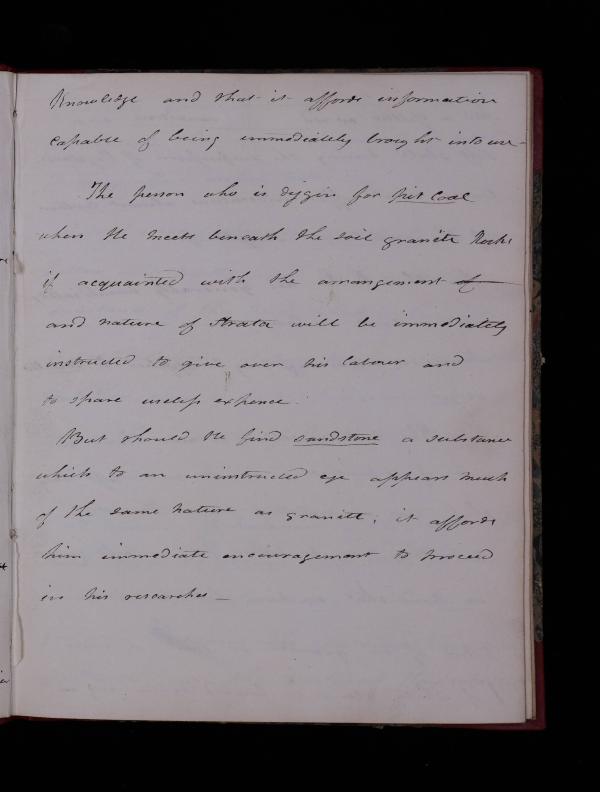 Knowledge and that it affords information
capable of being immediately brought into use -
The person who is diggin for pit Coal
when He meets beneath the soil granite Rocks
if acquainted with the arrangement of
and nature of Strata will be immediately
instructed to give over his labour and
to spare useless expence.
But should He find sandstone a substance
which to an uninstructed eye appears much
of the same nature as granite; it affords
him immediate encouragement to proceed
in his researches _